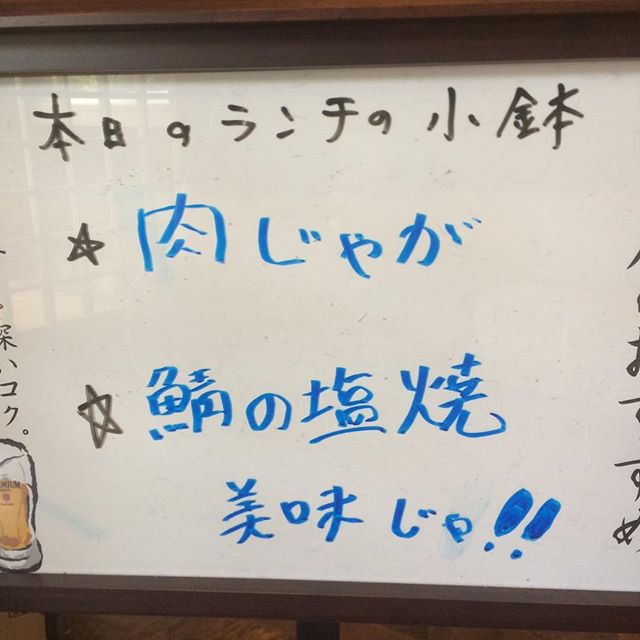 本日のランチの小鉢
☆肉じゃが
☆鯖の塩焼
美味じゃ!!
深いコク。
おすすめ